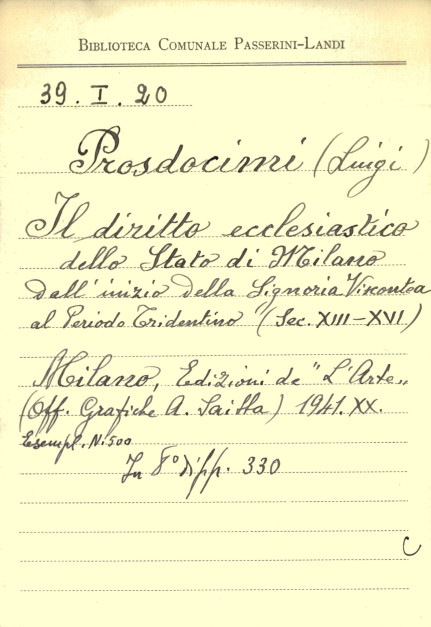 BIBLIOTECA COMUNALE PASSERINI-LANDI
39. I. 20
Prosdocimi (Luigi)
Il diritto ecclesiastico
dello Stato di Milano
dall'inizio della Signoria Viscontea
al Periodo Tridentino" (Sec. XIII-XVI)
Milano, Edizioni de "L'Arte"
(Off. Grafiche A. Saitta) 1941. XX.
Esempl. N. 500
In 8° di pp. 330
C